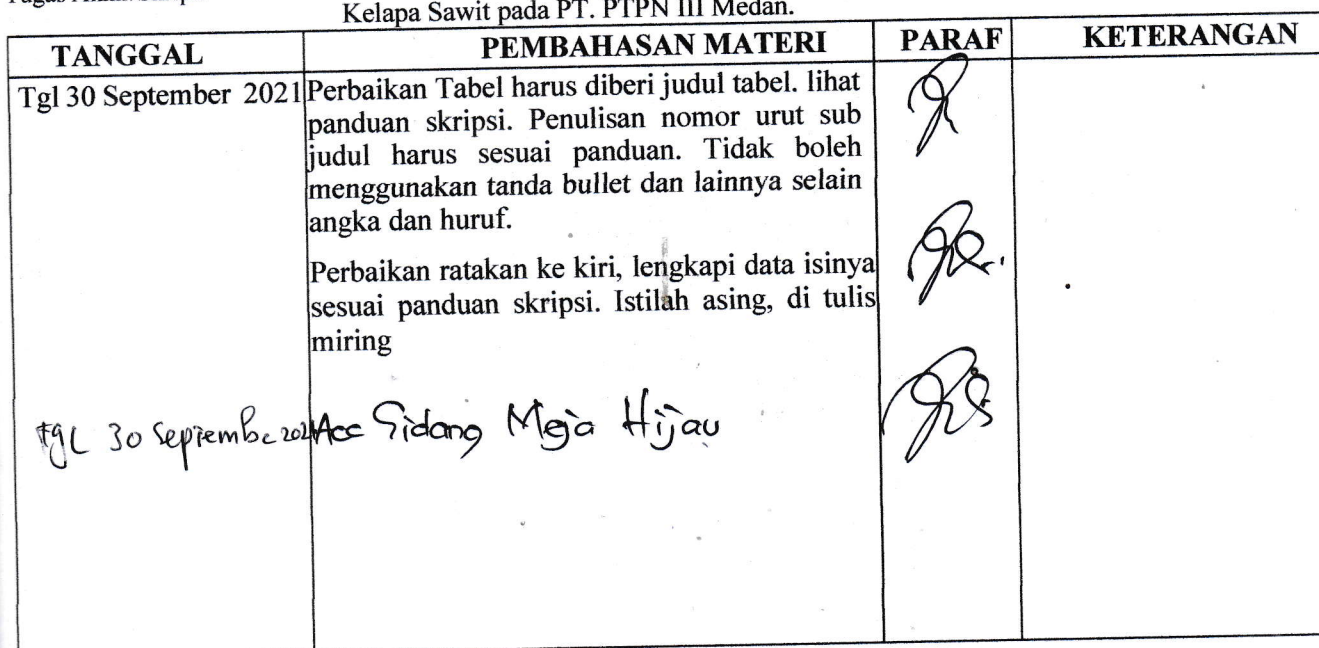 Kelapa Sawit pada PT. PTPN III Medan.
TANGGAL PEMBAHASAN MATERI PARAF KETERANGAN
Tgl 30 September 2021 Perbaikan Tabel harus diberi judul tabel. lihat
panduan skripsi. Penulisan nomor urut sub
judul harus sesuai panduan. Tidak boleh
menggunakan tanda bullet dan lainnya selain
angka dan huruf.
Perbaikan ratakan ke kiri, lengkapi data isinya
sesuai panduan skripsi. Istilah asing, di tulis
miring
Tgl 30 September 2021 Acc Sidang Meja Hijau